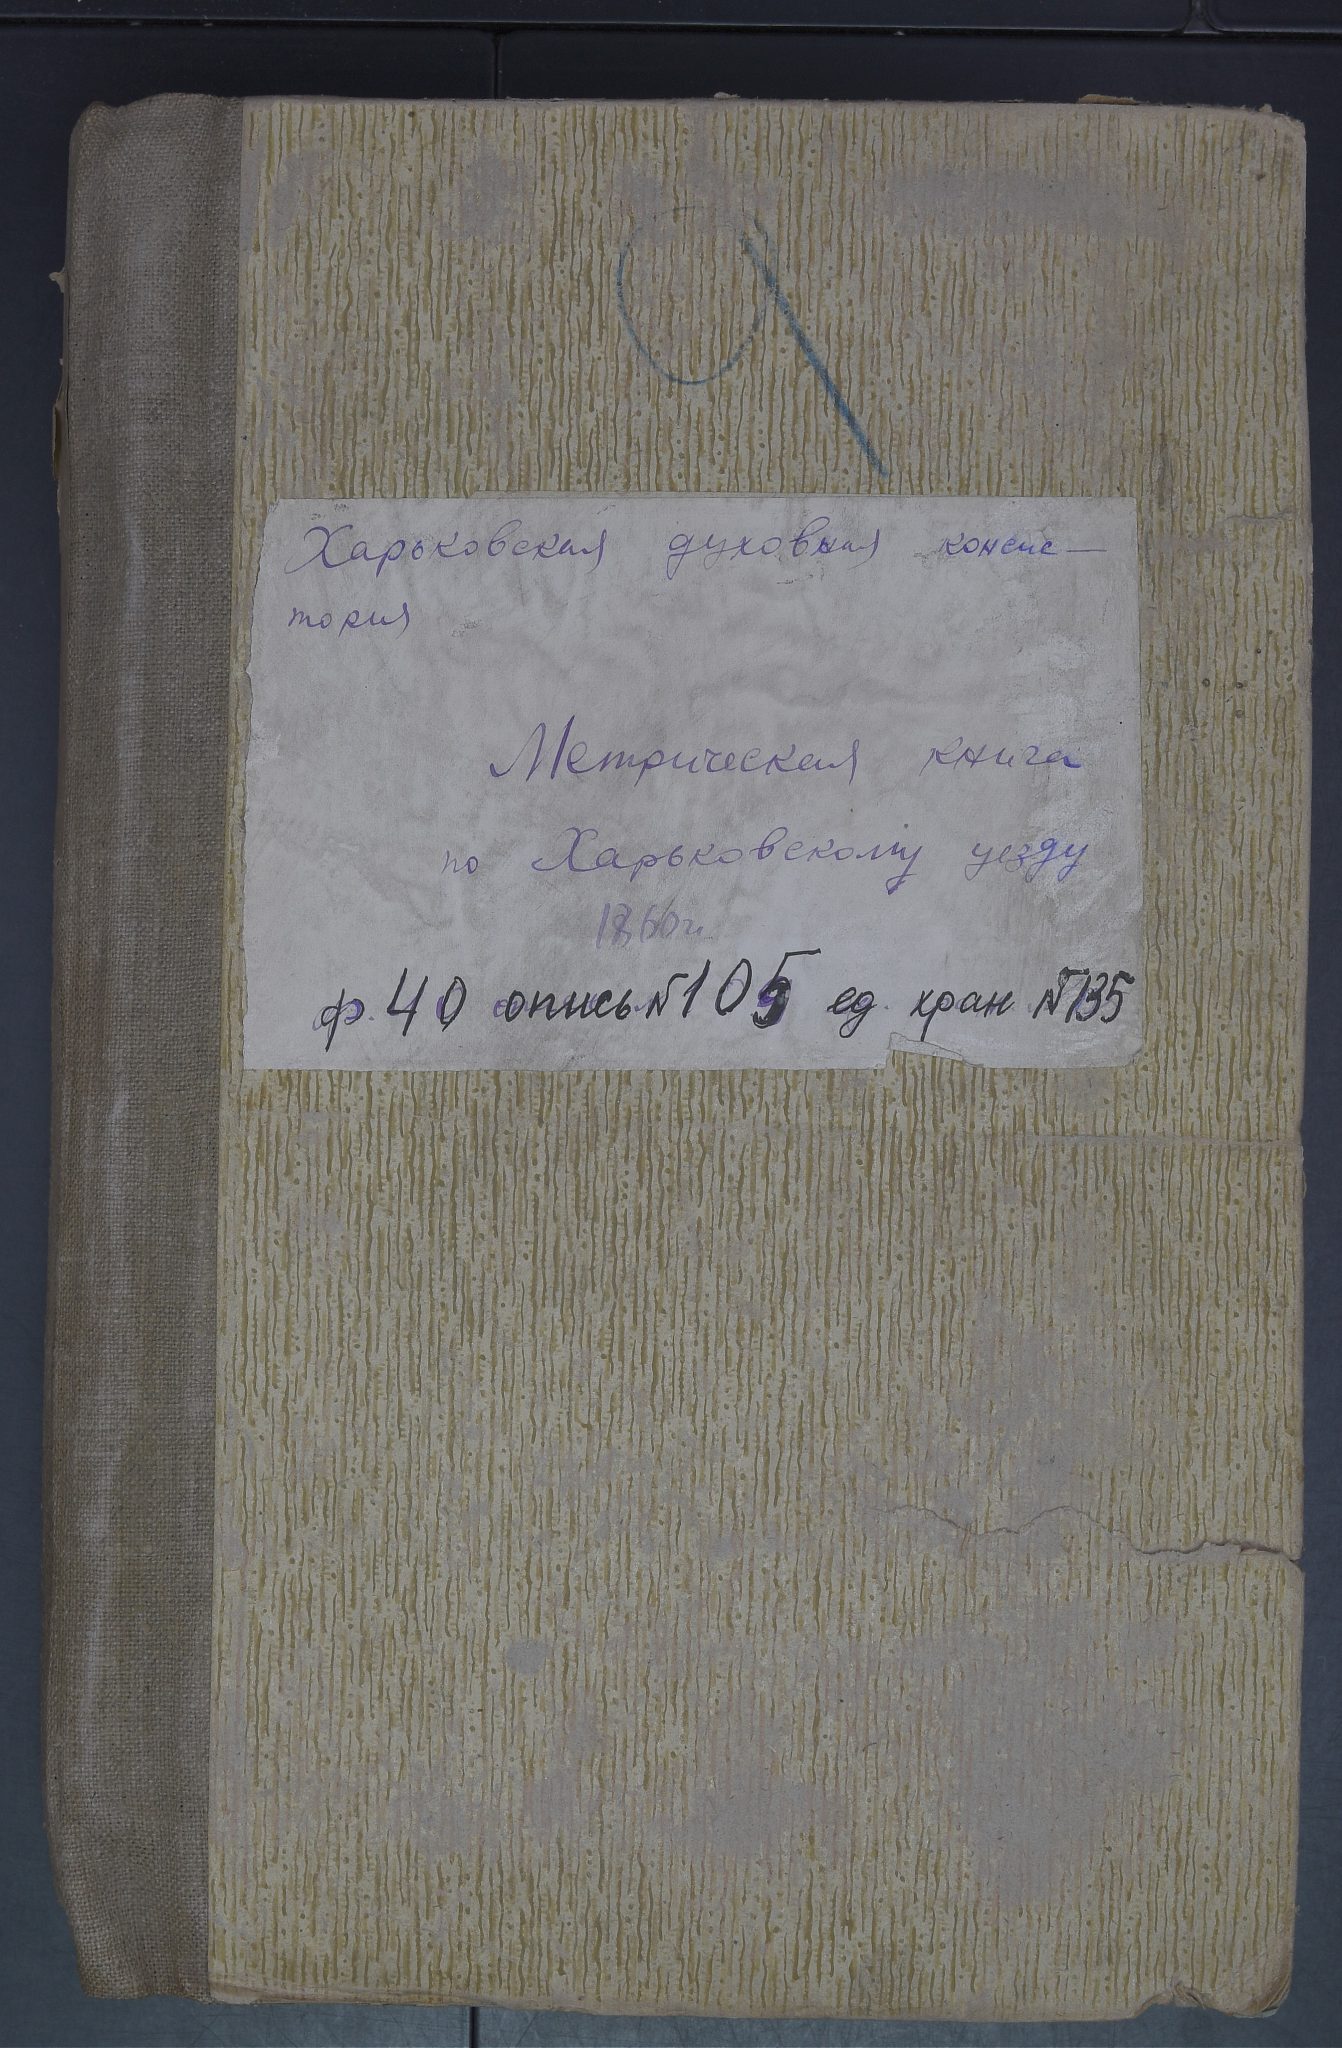 Харьковская духовная консис-
тория
Метрическая книга
по Харьковскому уезду
1860 г.
ф. 40 опись № 105 ед. хран № 135